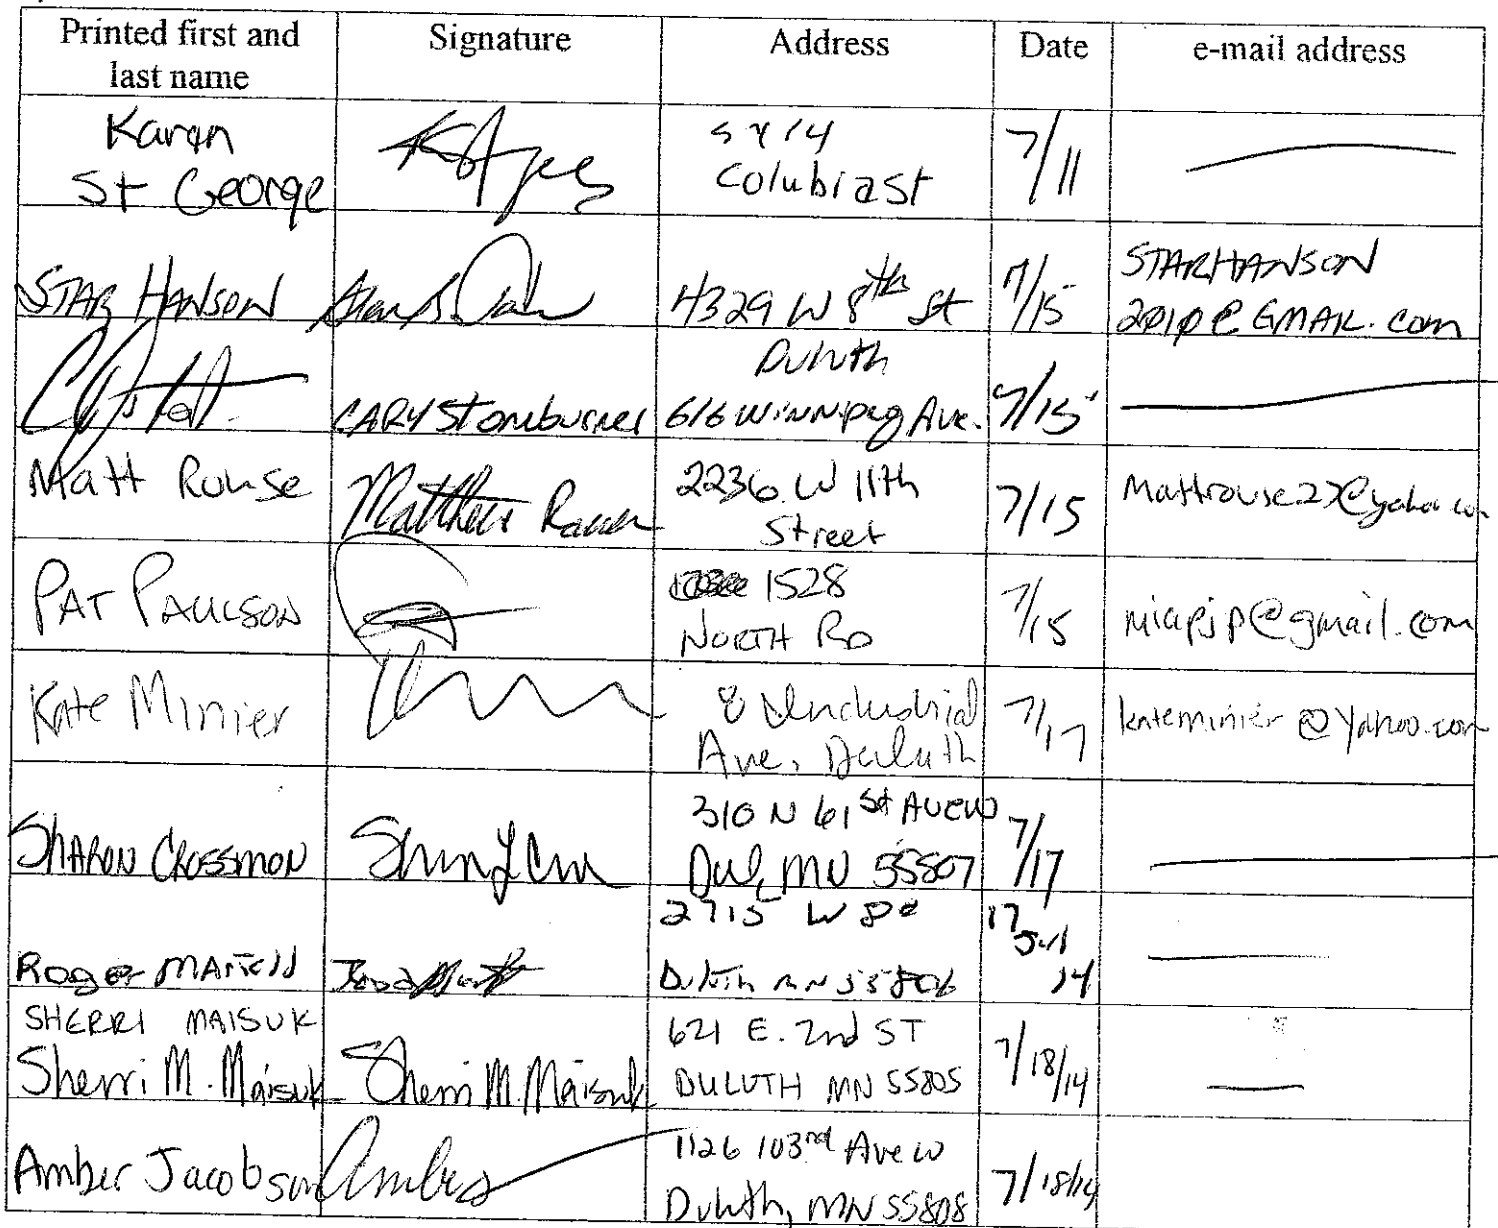 Printed first and
last name
Signature
Address
Date
e-mail address
Karen
St George
Colubia st
7/11
STAR HANSON
4329 W 8th St
7/15
STARHANSON
2010@GMAIL.com
Duluth
CARY Stoneburner
616 Winnipeg Ave.
7/15
Matt Rouse
Matthew Rouse
2236 W 11th
Street
7/15
mattrouse27@yahoo.com
PAT PAULSON
1528
NORTH RD
7/15
micpjp@gmail.com
Kate Minier
8 Industrial
Ave, Duluth
7/17
kateminier@yahoo.com
SHARON CROSSMON
310 N 61st AVE W
Dul, MN 55807
7/17
Roger
2715 W
Duluth MN 55806
17
Jul
14
SHERRI MAISUK
Sherri M. Maisuk
Sherri M Maisuk
621 E. 2nd ST
DULUTH MN 55805
7/18/14
Amber Jacobson
Amber
1126 103rd Ave W
Duluth, MN 55808
7/18/14